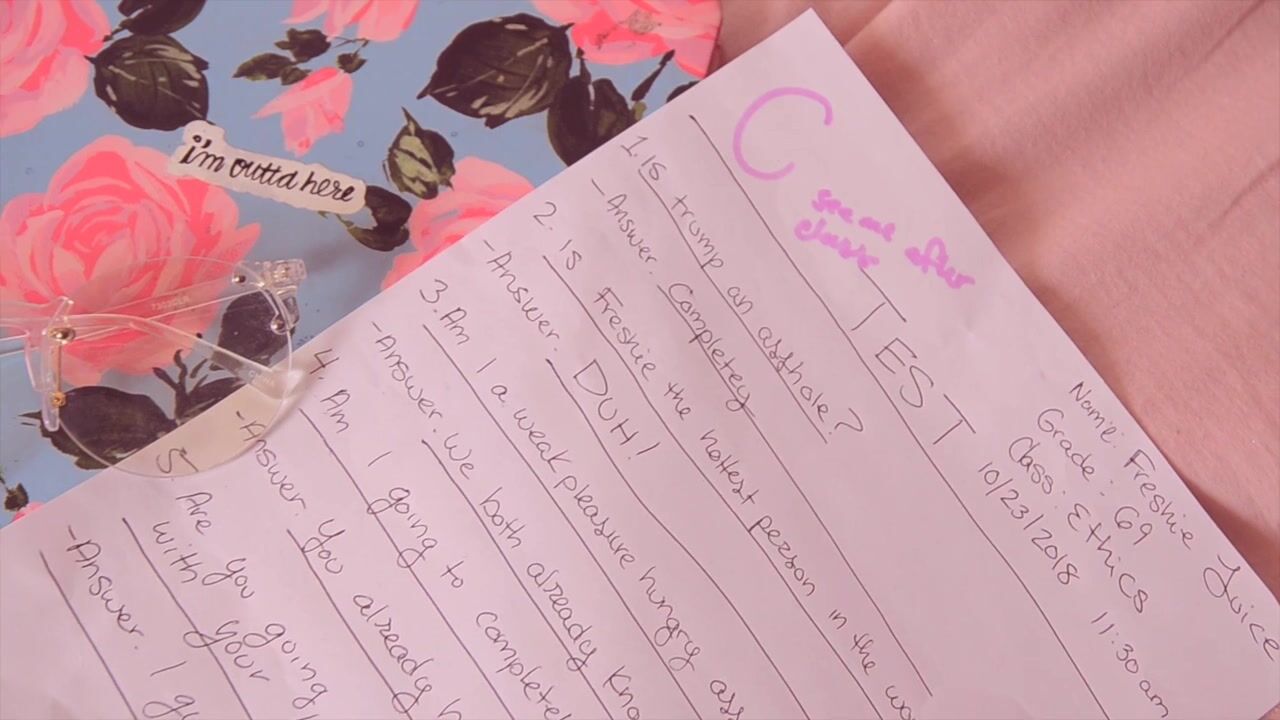 i'm outta here
C
see me after
class
Name: Freshie Juice
Grade: 69
Class: Ethics
10/23/2018 11:30am
TEST
1. Is trump an asshole?
- Answer. Completey
2. is Freshie the hottest person in the wo
- Answer. DUH!
3. Am I a weak pleasure hungry ass
- Answer. We both already kno
4. Am I going to complete
- Answer. You already h
5. Are you going
with your
- Answer. I gu